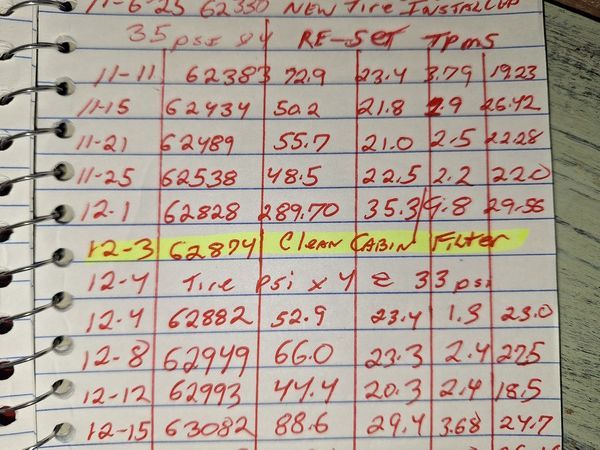 11-6-25 62330 New Tire Install
35 psi x4 RE-SET TPMS
11-11 62383 72.9 23.4 3.79 19.23
11-15 62434 50.2 21.8 1.9 26.42
11-21 62489 55.7 21.0 2.5 22.28
11-25 62538 48.5 22.5 2.2 22.0
12-1 62828 289.70 35.3 9.8 29.56
12-3 62874 Clean CABIN Filter
12-4 Tire psi x 4 @ 33 psi
12-4 62882 52.9 23.4 1.9 23.0
12-8 62949 66.0 23.3 2.4 27.5
12-12 62993 44.4 20.3 2.4 18.5
12-15 63082 88.6 29.4 3.68 24.7